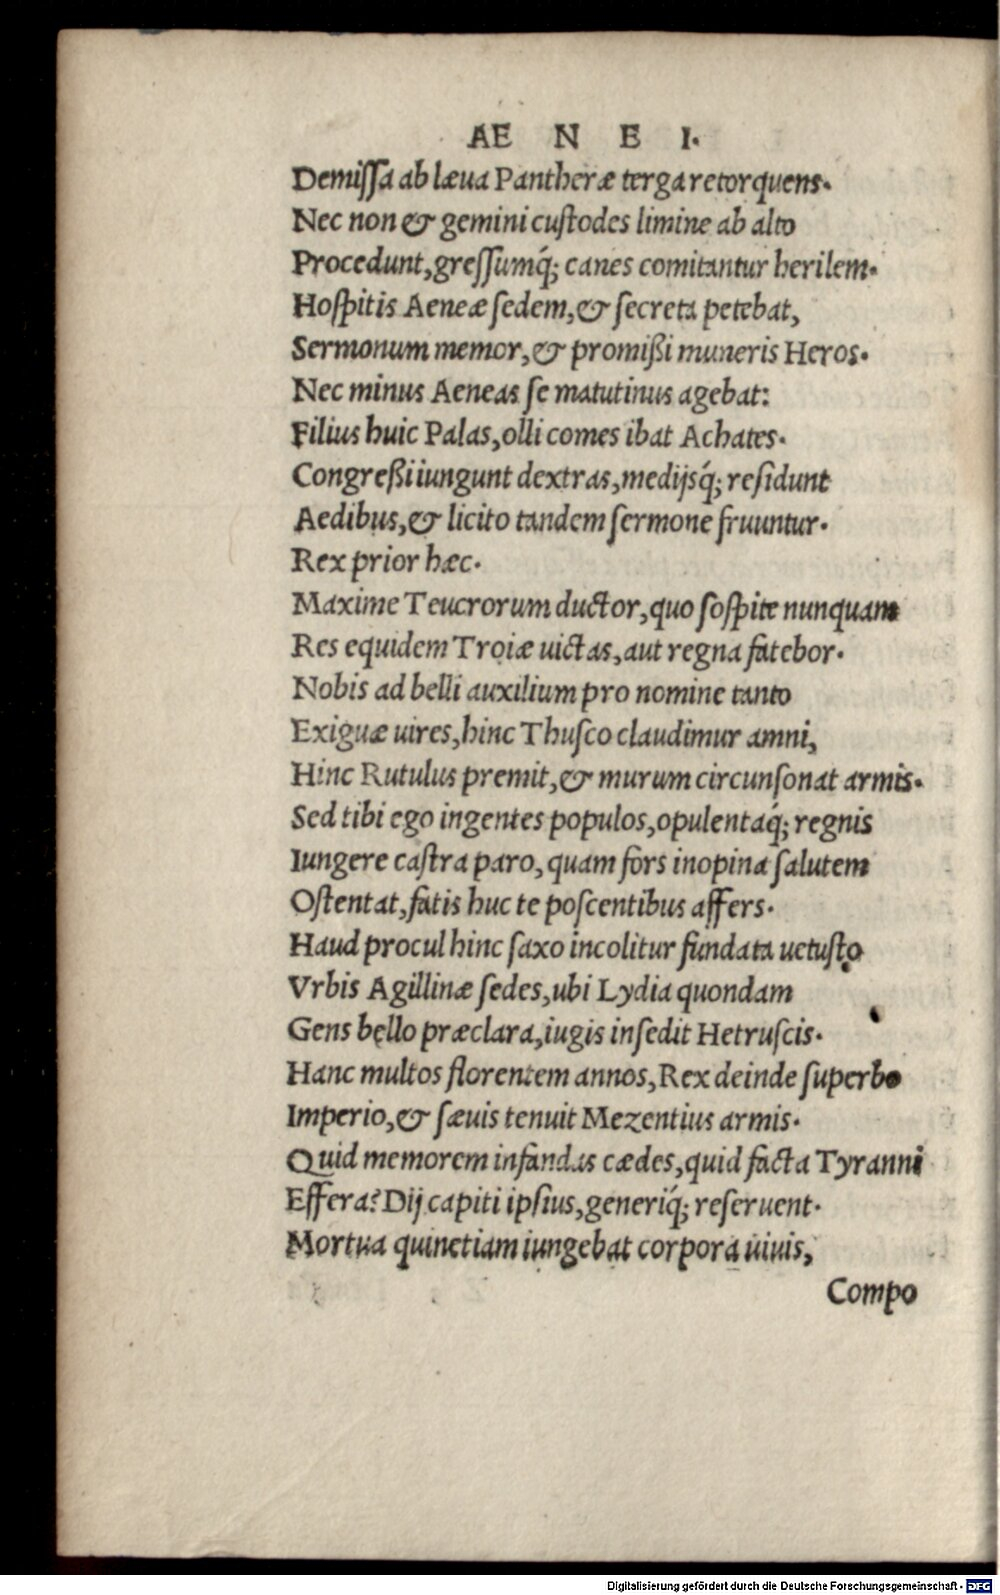 AE N E I.
Demiſſa ab læua Pantheræ terga retorquens.
Nec non & gemini cuſtodes limine ab alto
Procedunt, greſſumq́; canes comitantur herilem.
Hoſpitis Aeneæ ſedem, & ſecreta petebat,
Sermonum memor, & promißi muneris Heros.
Nec minus Aeneas ſe matutinus agebat:
Filius huic Palas, olli comes ibat Achates.
Congreßi iungunt dextras, medijsq́; reſidunt
Aedibus, & licito tandem ſermone fruuntur.
Rex prior hæc.
Maxime Teucrorum ductor, quo ſoſpite nunquam
Res equidem Troiæ uictas, aut regna fatebor.
Nobis ad belli auxilium pro nomine tanto
Exiguæ uires, hinc Thuſco claudimur amni,
Hinc Rutulus premit, & murum circunſonat armis.
Sed tibi ego ingentes populos, opulentaq́; regnis
Iungere caſtra paro, quam fors inopina ſalutem
Oſtentat, fatis huc te poſcentibus affers.
Haud procul hinc ſaxo incolitur fundata uetuſto
Vrbis Agillinæ ſedes, ubi Lydia quondam
Gens bello præclara, iugis inſedit Hetruſcis.
Hanc multos florentem annos, Rex deinde ſuperbo
Imperio, & ſæuis tenuit Mezentius armis.
Quid memorem infandas cædes, quid facta Tyranni
Effera? Dij capiti ipſius, generiq́; reſeruent.
Mortua quinetiam iungebat corpora uiuis,
Compo
Digitalisierung gefördert durch die Deutsche Forschungsgemeinschaft - DFG